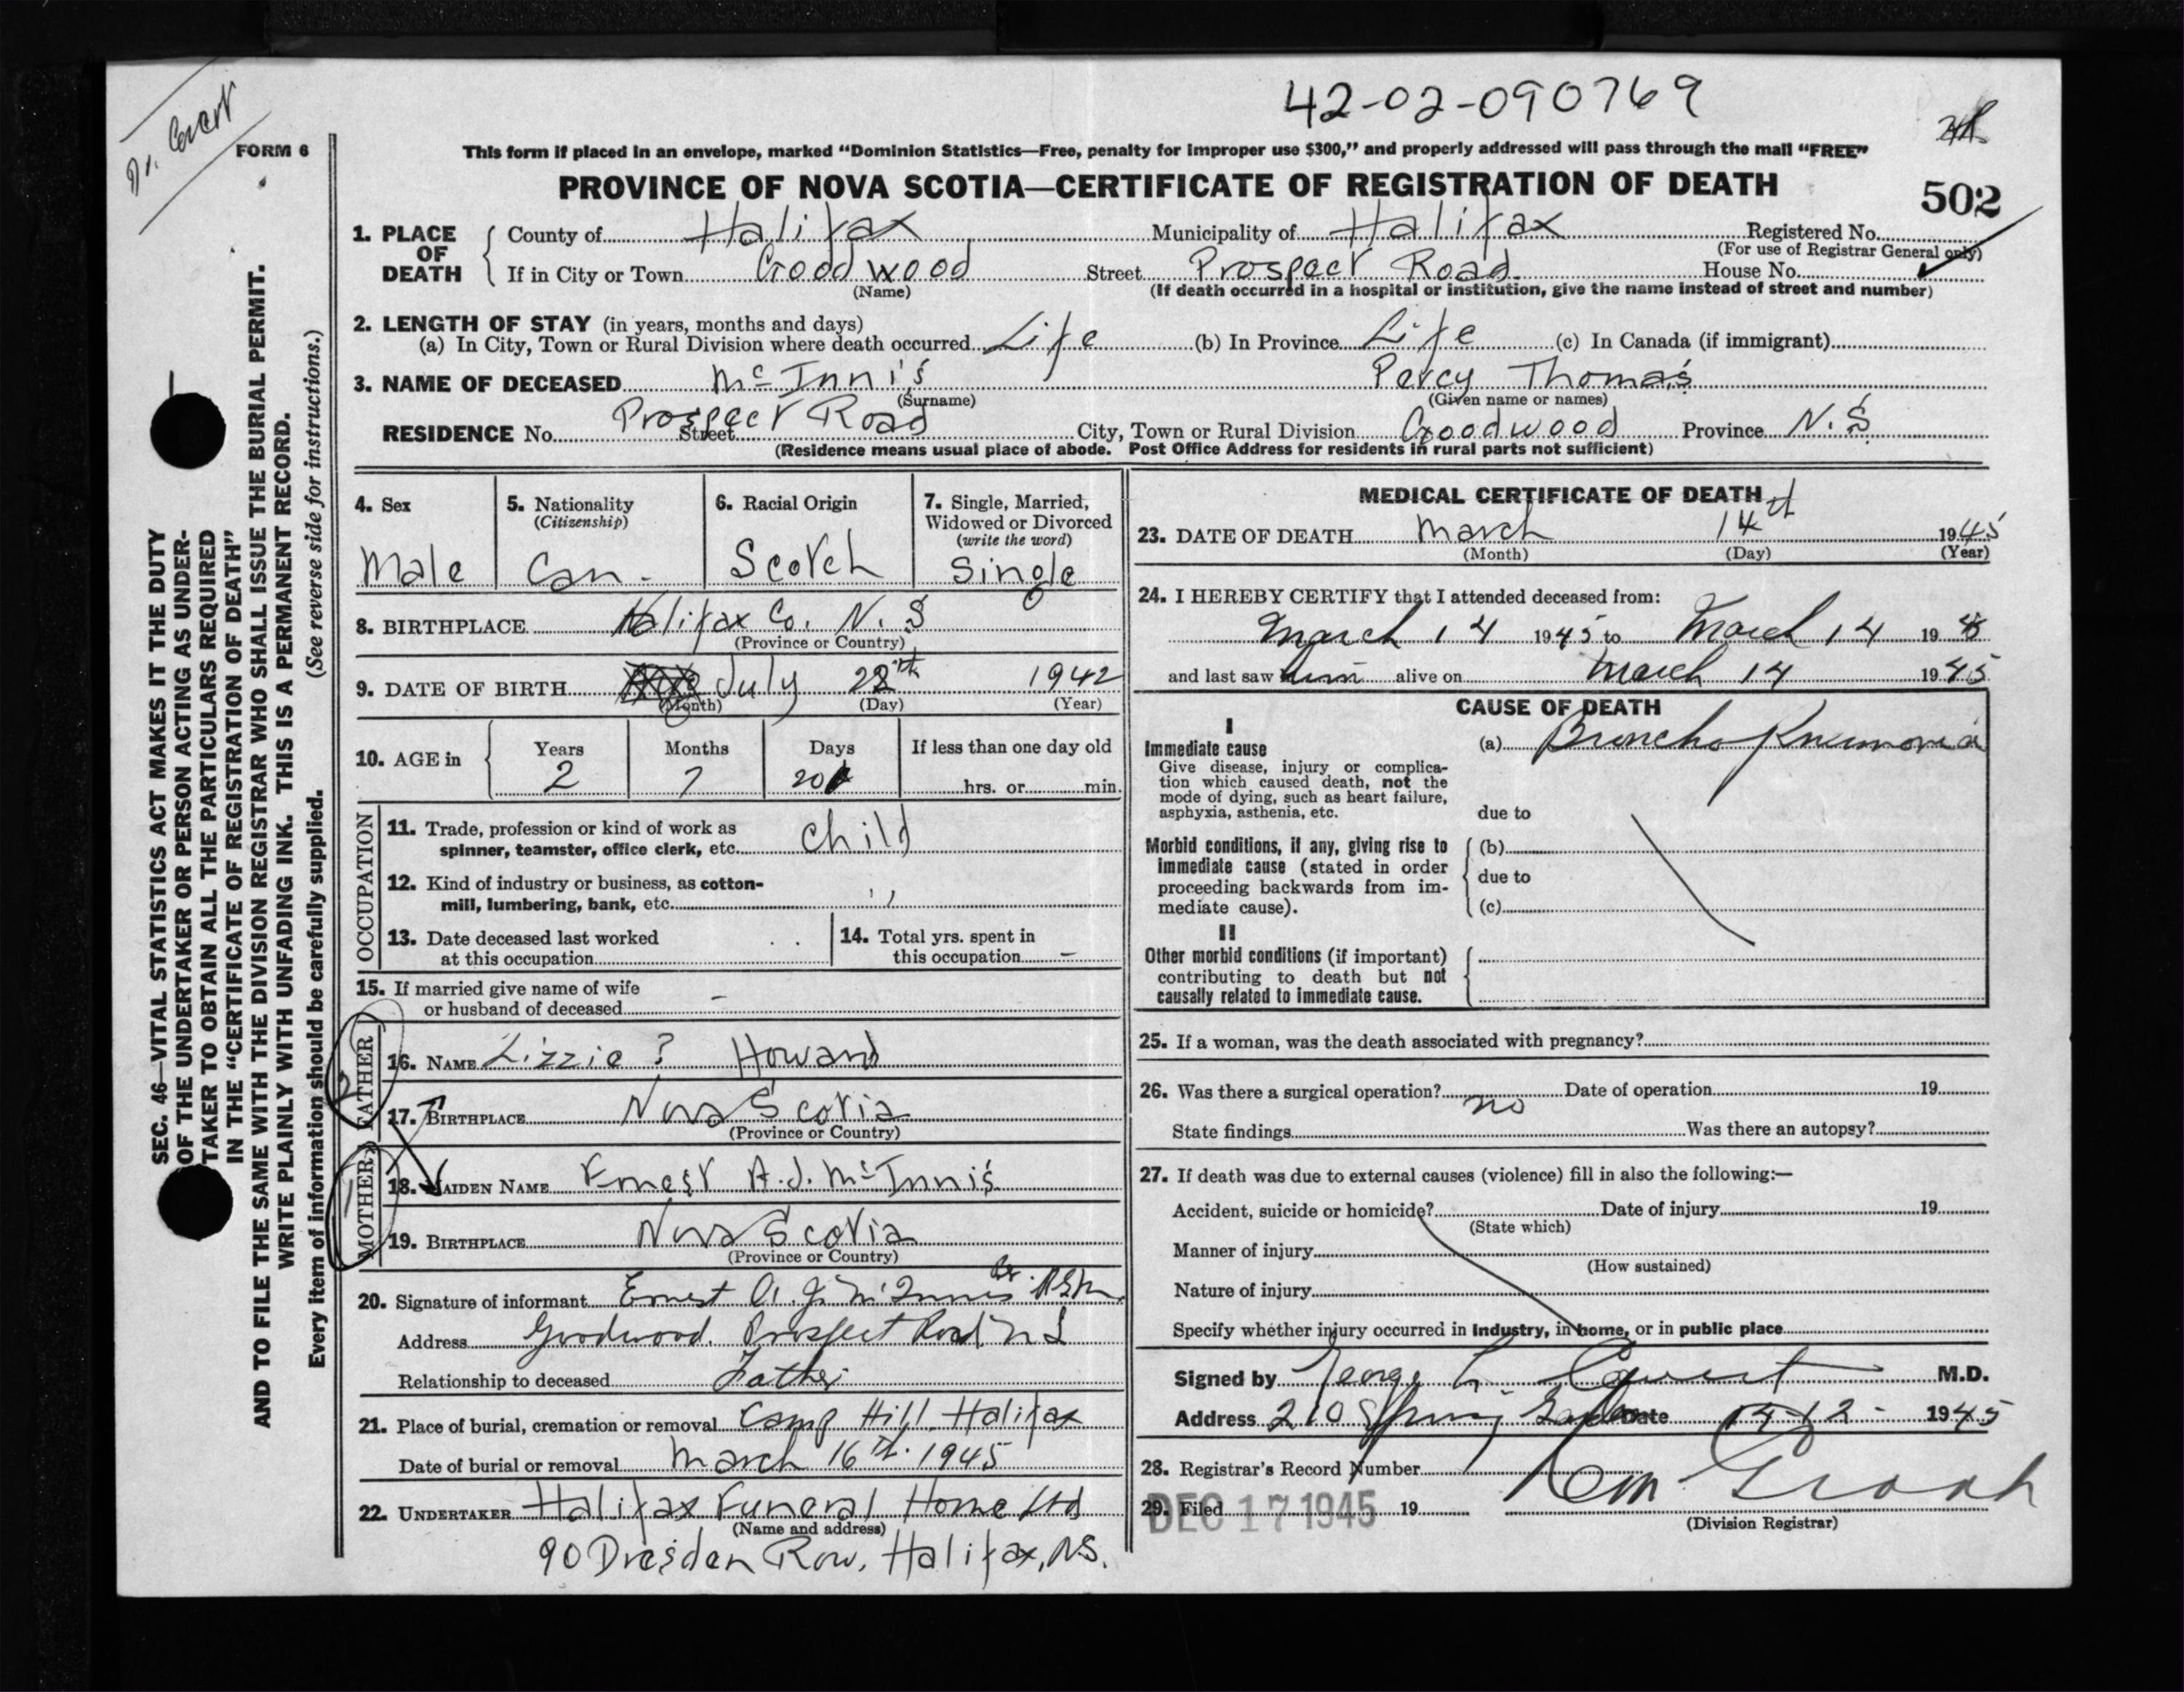 42-02-090769
Dr. Covert
FORM 6
This form if placed in an envelope, marked “Dominion Statistics—Free, penalty for improper use $300,” and properly addressed will pass through the mail “FREE”
PROVINCE OF NOVA SCOTIA—CERTIFICATE OF REGISTRATION OF DEATH
502
1. PLACE OF DEATH County of Halifax Municipality of Halifax Registered No.
(For use of Registrar General only)
If in City or Town Goodwood Street Prospect Road House No.
(Name) (If death occurred in a hospital or institution, give the name instead of street and number)
2. LENGTH OF STAY (in years, months and days)
(a) In City, Town or Rural Division where death occurred Life (b) In Province Life (c) In Canada (if immigrant)
3. NAME OF DECEASED McInnis Percy Thomas
(Surname) (Given name or names)
RESIDENCE No. Prospect Road Street City, Town or Rural Division Goodwood Province N.S
(Residence means usual place of abode. Post Office Address for residents in rural parts not sufficient)
4. Sex
Male
5. Nationality
(Citizenship)
Can.
6. Racial Origin
Scotch
7. Single, Married,
Widowed or Divorced
(write the word)
Single
8. BIRTHPLACE Halifax Co. N.S
(Province or Country)
9. DATE OF BIRTH July 22th 1942
(Month) (Day) (Year)
10. AGE in Years Months Days If less than one day old
2 7 20 hrs. or min.
OCCUPATION
11. Trade, profession or kind of work as
spinner, teamster, office clerk, etc. child
12. Kind of industry or business, as cotton-
mill, lumbering, bank, etc. ,,
13. Date deceased last worked
at this occupation
14. Total yrs. spent in
this occupation –
15. If married give name of wife
or husband of deceased –
FATHER
16. NAME Lizzie ? Howard
17. BIRTHPLACE Nova Scotia
(Province or Country)
MOTHER
18. MAIDEN NAME Ernest A.J. McInnis
19. BIRTHPLACE Nova Scotia
(Province or Country)
20. Signature of informant Ernest A. J. McInnis
Address Goodwood. Prospect Road N S
Relationship to deceased Father
21. Place of burial, cremation or removal Camp Hill Halifax
Date of burial or removal March 16th. 1945
22. UNDERTAKER Halifax Funeral Home Ltd
(Name and address)
90 Dresden Row, Halifax, N.S.
MEDICAL CERTIFICATE OF DEATH
23. DATE OF DEATH March 14th 1945
(Month) (Day) (Year)
24. I HEREBY CERTIFY that I attended deceased from:
March 14 1945 to March 14 1945
and last saw him alive on March 14 1945
CAUSE OF DEATH
I
Immediate cause (a) Broncho Pneumonia
Give disease, injury or complica-
tion which caused death, not the
mode of dying, such as heart failure,
asphyxia, asthenia, etc. due to
Morbid conditions, if any, giving rise to (b)
immediate cause (stated in order
proceeding backwards from im- due to
mediate cause). (c)
II
Other morbid conditions (if important)
contributing to death but not
causally related to immediate cause.
25. If a woman, was the death associated with pregnancy?
26. Was there a surgical operation? no Date of operation 19
State findings Was there an autopsy?
27. If death was due to external causes (violence) fill in also the following:—
Accident, suicide or homicide? Date of injury 19
(State which)
Manner of injury
(How sustained)
Nature of injury
Specify whether injury occurred in industry, in home, or in public place
Signed by George L. Covert M.D.
Address 210 Spring Garden Date 15/12- 1945
28. Registrar's Record Number
29. Filed DEC 17 1945 19
(Division Registrar)
SEC. 46—VITAL STATISTICS ACT MAKES IT THE DUTY
OF THE UNDERTAKER OR PERSON ACTING AS UNDER-
TAKER TO OBTAIN ALL THE PARTICULARS REQUIRED
IN THE “CERTIFICATE OF REGISTRATION OF DEATH”
AND TO FILE THE SAME WITH THE DIVISION REGISTRAR WHO SHALL ISSUE THE BURIAL PERMIT.
WRITE PLAINLY WITH UNFADING INK. THIS IS A PERMANENT RECORD.
Every item of information should be carefully supplied. (See reverse side for instructions.)